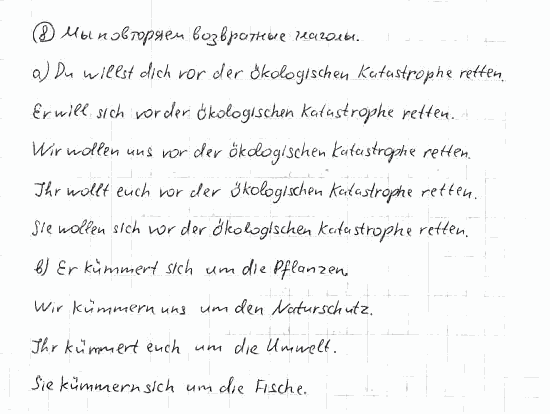 ⑧ Мы повторяем возвратные глаголы.
a) Du willst dich vor der ökologischen Katastrophe retten.
Er will sich vor der ökologischen Katastrophe retten.
Wir wollen uns vor der ökologischen Katastrophe retten.
Ihr wollt euch vor der ökologischen Katastrophe retten.
Sie wollen sich vor der ökologischen Katastrophe retten.
b) Er kümmert sich um die Pflanzen.
Wir kümmern uns um den Naturschutz.
Ihr kümmert euch um die Umwelt.
Sie kümmern sich um die Fische.